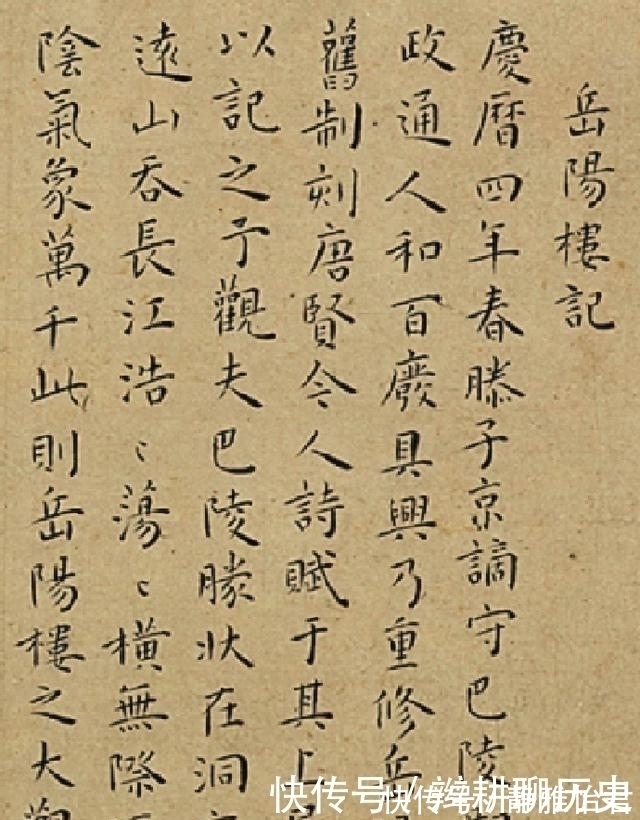 岳陽樓記
慶曆四年春滕子京謫守巴陵
政通人和百廢具興乃重修岳
舊制刻唐賢今人詩賦于其上
以記之予觀夫巴陵勝狀在洞
遠山吞長江浩〻蕩〻橫無際
陰氣象萬千此則岳陽樓之大觀
快传号/耕聊历史
快传号/静雅